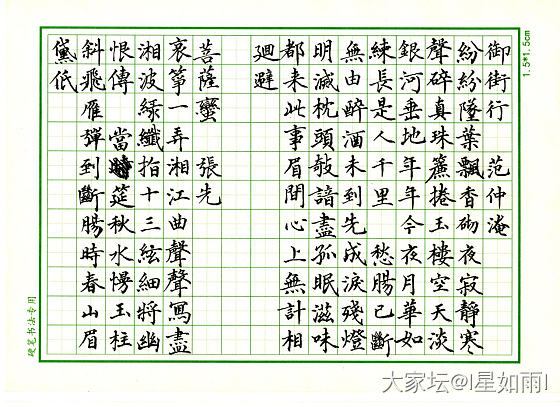 御街行 范仲淹
紛紛墜葉飄香砌夜寂靜寒
聲碎真珠簾捲玉樓空天淡
銀河垂地年年今夜月華如
練長是人千里 愁腸已斷
無由醉酒未到先成淚殘燈
明滅枕頭敧諳盡孤眠滋味
都来此事眉間心上無計相
迴避
菩薩蠻 張先
哀箏一弄湘江曲聲聲寫盡
湘波緑纖指十三絃細將幽
恨傳 當筵秋水慢玉柱
斜飛雁彈到斷腸時春山眉
黛低
1.5*1.5cm
硬笔书法专用
大家坛@I星如雨I